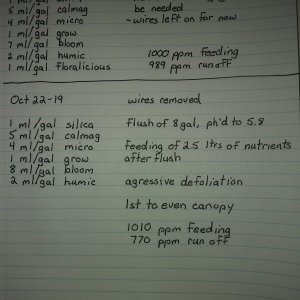 5 ml/gal calmag
be needed
4 ml/gal micro
-wires left on for now
1 ml/gal grow
7 ml/gal bloom
2 ml/gal humic
1000 ppm feeding
1 ml/gal floralicious
989 ppm runoff
Oct 22-19
wires removed
1 ml/gal silica
flush of 8 gal, ph'd to 5.8
5 ml/gal calmag
4 ml/gal micro
feeding of 2.5 ltrs of nutrients
1 ml/gal grow
after flush
8 ml/gal bloom
2 ml/gal humic
agressive defoliation
1st to even canopy
1010 ppm feeding
770 ppm run off